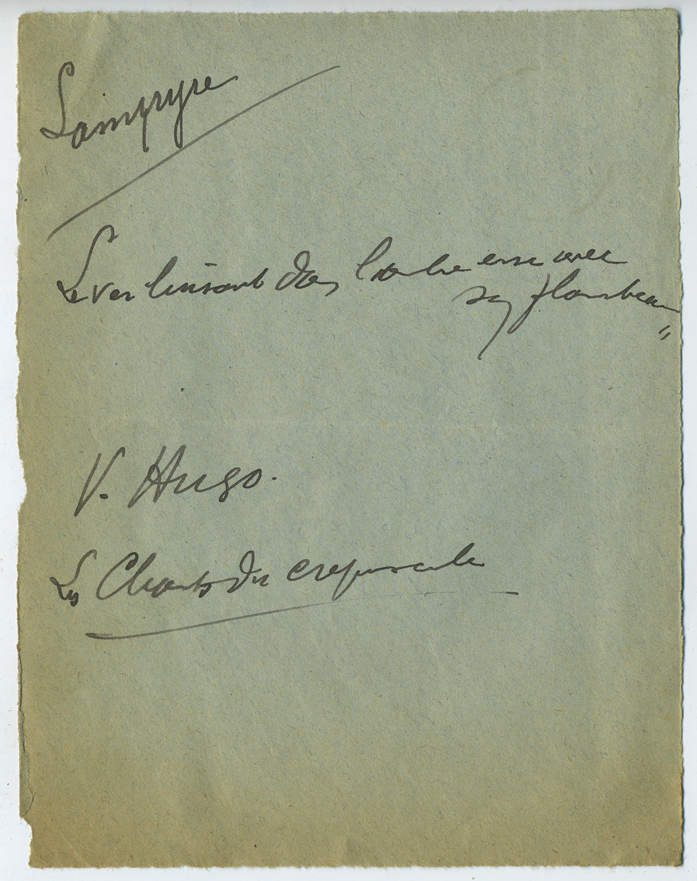 Lampyre
Le ver luisant dans l'ombre erre avec
son flambeau
"
V. Hugo.
Les Chants du crépuscule